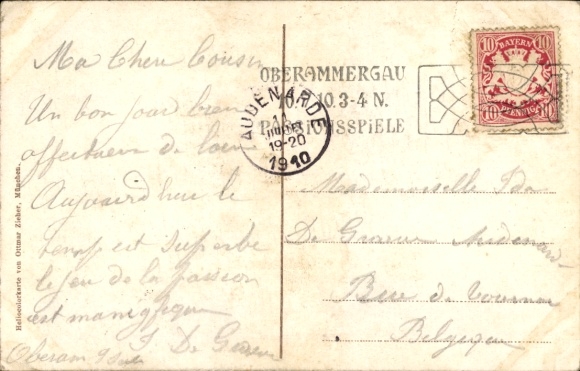 Ma Chere Cousine
Un bon jour bien
affectueux de loin
Aujourd'hui le
temps est superbe
le jeu de la passion
est manigfique
Oberam 9
OBERAMMERGAU
10. 3-4 N.
PASSIONSSPiELE
AUDENARDE
11
JUILLET
19-20
1910
10 BAYERN 10
10 PFENNIG 10
Mademoiselle Ida
De
Rue de Tournai
Belgique
Heliocolorkarte von Ottmar Zieher, München.